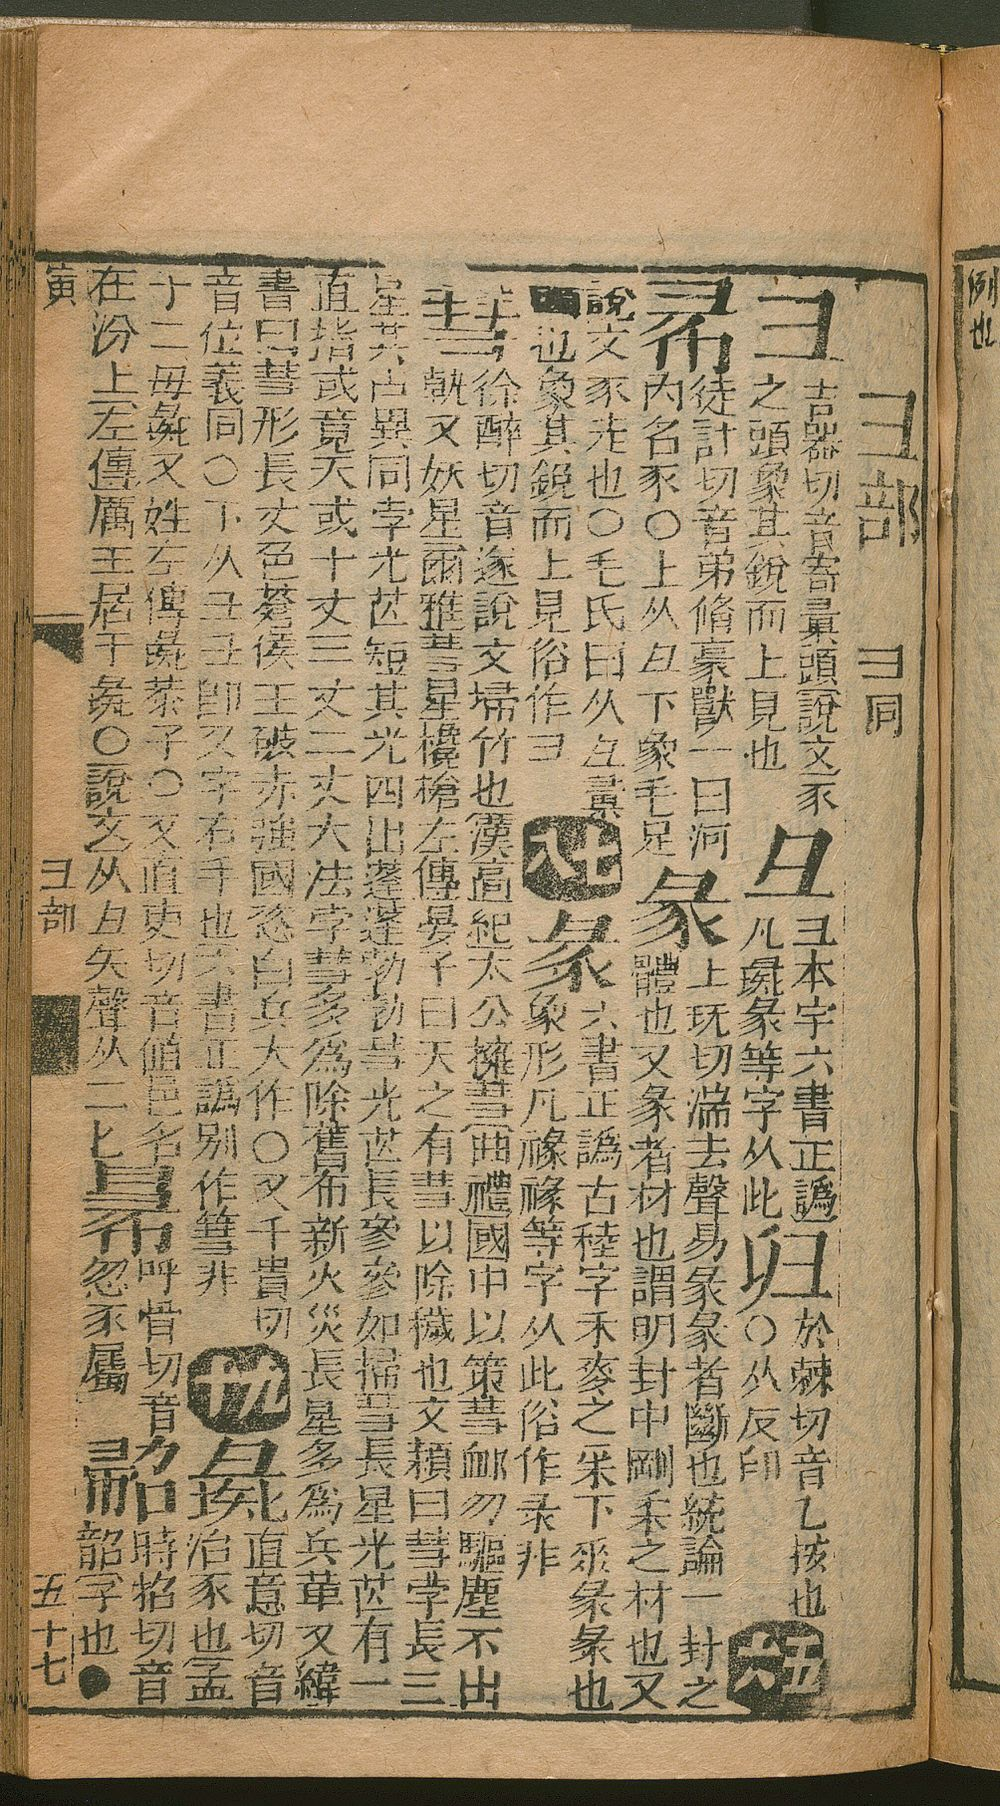 彐部　彑同
彐
吉器切音寄彙頭說文豕
之頭象其銳而上見也
彑
彐本字六書正譌
凡彘彖等字从此
归
於棘切音乙按也
○从反印
五六
㣇
徒計切音弟脩豪獸一曰河
內名豕○上从彑下象毛足
彖
上玩切湍去聲易彖彖者斷也統論一卦之
體也又彖者材也謂明卦中剛柔之材也又
說文豕走也○毛氏曰从彑畫
也象其銳而上見俗作彐
七八
彔
六書正譌古稑字禾麥之采下垂彔彔也
象形凡祿祿等字从此俗作录非
彗
徐醉切音遂說文埽竹也漢高紀太公擁彗曲禮國中以策彗䘏勿驅塵不出
軌又妖星爾雅彗星欃槍左傳晏子曰天之有彗以除穢也文穎曰彗孛長三
星其占異同孛光芒短其光四出蓬蓬勃勃彗光芒長參參如掃彗長星光芒有一
直指或竟天或十丈三丈二丈大法孛彗多為除舊布新火災長星多為兵革又緯
書曰彗形長丈色蒼侯王破赤強國恣白兵大作○又千貴切
音位義同○下从彐彐即又字右手也六書正譌別作篲非
九十
彘
直意切音
治豕也孟
子二母彘又姓左傳彘恭子○又直吏切音値邑名
在汾上左傳厲王居于彘○說文从彑矢聲从二匕
呼骨切音
忽豕屬
時招切音
韶字也
寅
彐部
五十七
例也